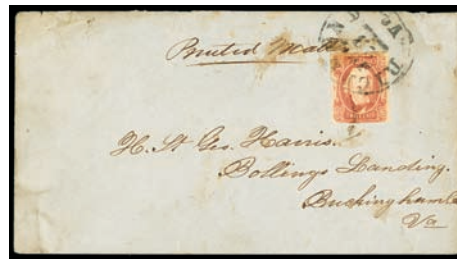 Printed Matter
H. St Geo. Harris.
Bollings Landing.
Buckingham Co
Va